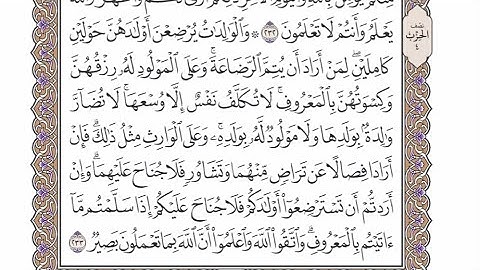 يَعْلَمُ وَأَنتُمْ لَا تَعْلَمُونَ ٢٣٢ ۞ وَٱلْوَٰلِدَٰتُ يُرْضِعْنَ أَوْلَٰدَهُنَّ حَوْلَيْنِ
كَامِلَيْنِۖ لِمَنْ أَرَادَ أَن يُتِمَّ ٱلرَّضَاعَةَۚ وَعَلَى ٱلْمَوْلُودِ لَهُۥ رِزْقُهُنَّ
وَكِسْوَتُهُنَّ بِٱلْمَعْرُوفِۚ لَا تُكَلَّفُ نَفْسٌ إِلَّا وُسْعَهَاۚ لَا تُضَآرَّ
وَٰلِدَةُۢ بِوَلَدِهَا وَلَا مَوْلُودٌ لَّهُۥ بِوَلَدِهِۦۚ وَعَلَى ٱلْوَارِثِ مِثْلُ ذَٰلِكَۗ فَإِنْ
أَرَادَا فِصَالًا عَن تَرَاضٍ مِّنْهُمَا وَتَشَاوُرٍ فَلَا جُنَاحَ عَلَيْهِمَاۗ وَإِنْ
أَرَدتُّمْ أَن تَسْتَرْضِعُوٓا۟ أَوْلَٰدَكُمْ فَلَا جُنَاحَ عَلَيْكُمْ إِذَا سَلَّمْتُم مَّآ
ءَاتَيْتُم بِٱلْمَعْرُوفِۗ وَٱتَّقُوا۟ ٱللَّهَ وَٱعْلَمُوٓا۟ أَنَّ ٱللَّهَ بِمَا تَعْمَلُونَ بَصِيرٌ ٢٣٣
نصف
الحزب
٤